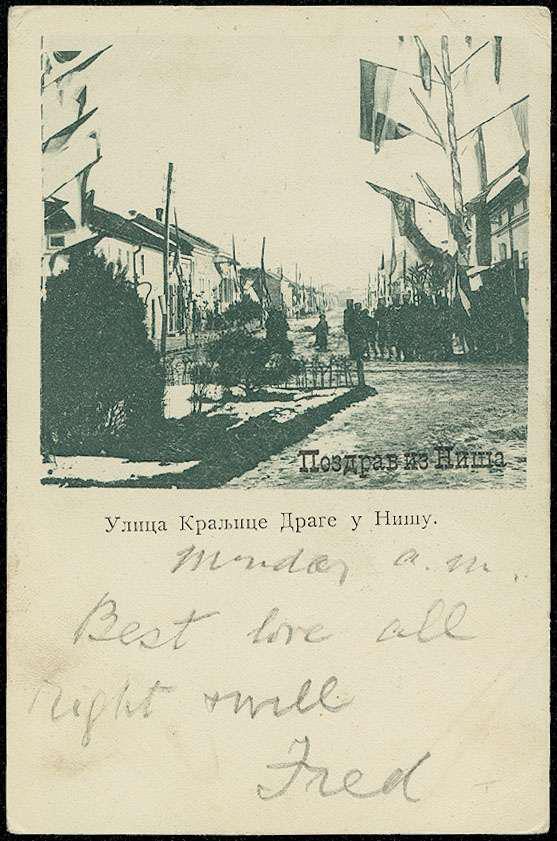 Поздрав из Ниша
Улица Краљице Драге у Нишу.
Monday a.m.
Best love all
right & well
Fred